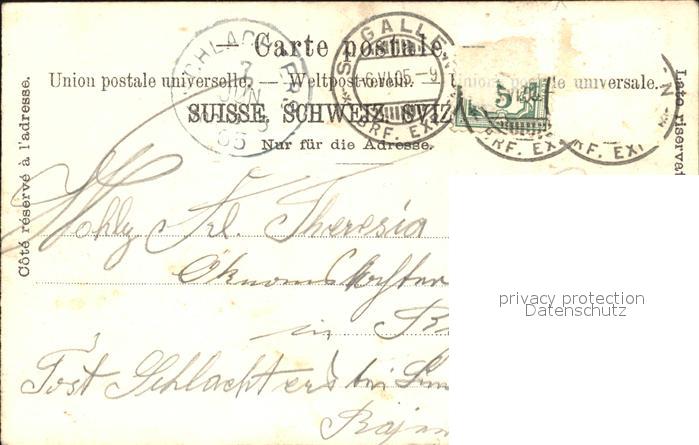 — Carte postale. —
Union postale universelle. — Weltpostverein. — Unione postale universale.
SUISSE. SCHWEIZ. SVIZ
Nur für die Adresse.
Côté réservé à l'adresse.
Lato riservat
SCHLACHTERS
7
JUN
05
ST. GALLEN
6.VI.05.-9
BRF. EXP.
5
RF. EX
RF. EXP
N
Wohlg. Frl. Theresia
Ökonomstochter
in
Post Schlachters bei
privacy protection
Datenschutz